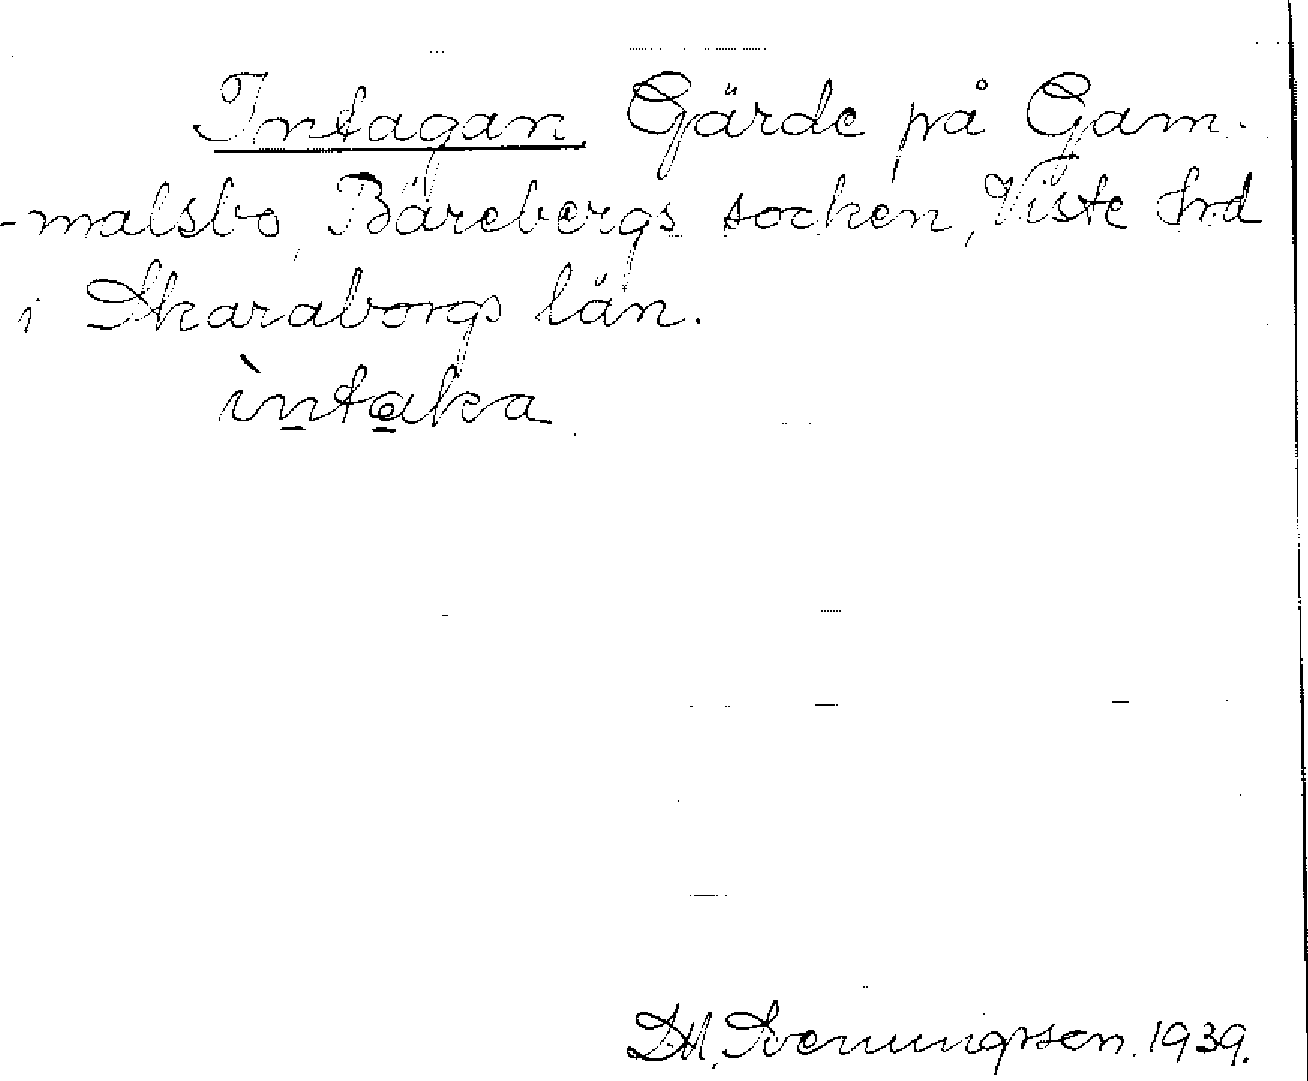 Intagan Gärde på Gam-
-malsbo, Bärebergs socken, Viste hrd
i Skaraborgs län.
ìntaka
D.H. Svenungsson. 1939.